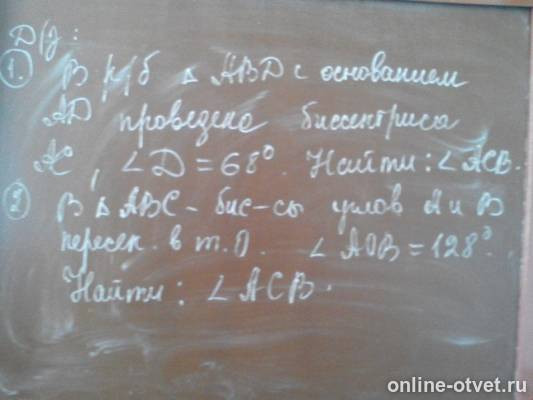 Д/з:
1. В р/б △ ABD с основанием
AD проведена биссектриса
AC, ∠D = 68°. Найти: ∠ACB.
2 В △ ABC - бис-сы углов A и B
пересек. в т. O. ∠ AOB = 128°.
Найти: ∠ ACB.
online-otvet.ru